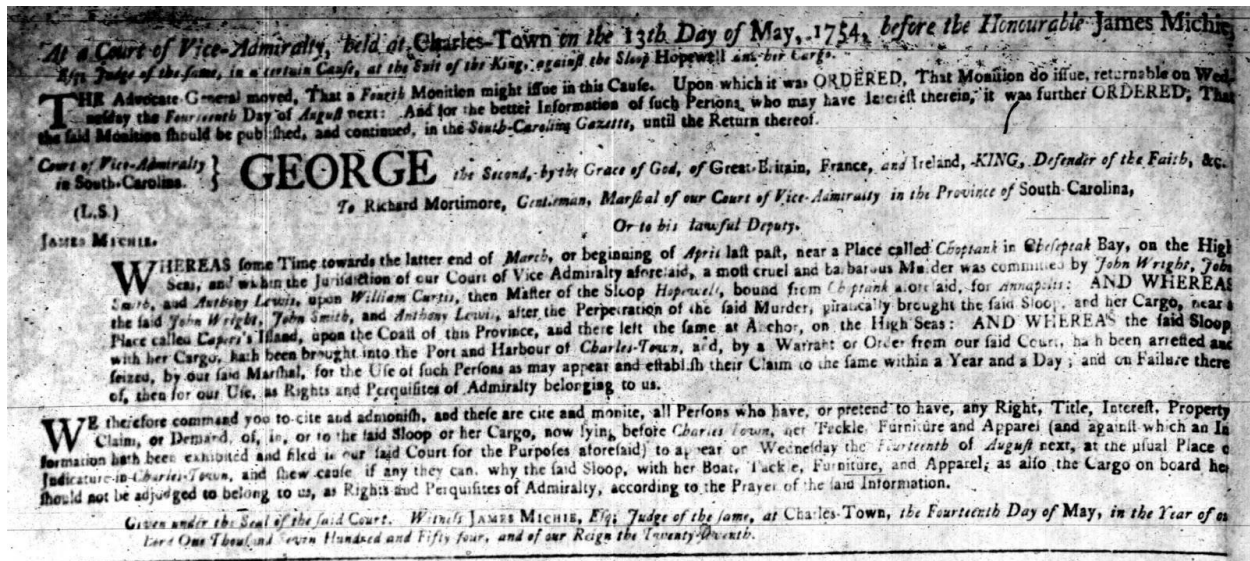 At a Court of Vice-Admiralty, held at Charles-Town on the 13th Day of May, 1754, before the Honourable James Michie,
Esq; Judge of the same, in a certain Cause, at the Suit of the King, against the Sloop Hopewell and her Cargo.
THE Advocate-General moved, That a Fourth Monition might issue in this Cause. Upon which it was ORDERED, That Monition do issue, returnable on Wed-
nesday the Fourteenth Day of August next: And for the better Information of such Persons, who may have Interest therein, it was further ORDERED, That
the said Monition should be published, and continued, in the South-Carolina Gazette, until the Return thereof.
Court of Vice-Admiralty
in South-Carolina. } GEORGE the Second, by the Grace of God, of Great-Britain, France, and Ireland, KING, Defender of the Faith, &c.
(L.S.) To Richard Mortimore, Gentleman, Marshal of our Court of Vice-Admiralty in the Province of South-Carolina,
Or to his lawful Deputy.
JAMES MICHIE.
WHEREAS some Time towards the latter end of March, or beginning of April last past, near a Place called Choptank in Chesepeak Bay, on the High
Seas, and within the Jurisdiction of our Court of Vice Admiralty aforesaid, a most cruel and barbarous Murder was committed by John Wright, John
Smith, and Anthony Lewis, upon William Curtis, then Master of the Sloop Hopewell, bound from Choptank aforesaid, for Annapolis: AND WHEREAS
the said John Wright, John Smith, and Anthony Lewis, after the Perpetration of the said Murder, piratically brought the said Sloop, and her Cargo, near a
Place called Capers's Island, upon the Coast of this Province, and there left the same at Anchor, on the High Seas: AND WHEREAS the said Sloop
with her Cargo, hath been brought into the Port and Harbour of Charles-Town, and, by a Warrant or Order from our said Court, hath been arrested and
seized, by our said Marshal, for the Use of such Persons as may appear and establish their Claim to the same within a Year and a Day; and on Failure there-
of, then for our Use, as Rights and Perquisites of Admiralty belonging to us.
WE therefore command you to cite and admonish, and these are cite and monite, all Persons who have, or pretend to have, any Right, Title, Interest, Property
Claim, or Demand, of, in, or to the said Sloop or her Cargo, now lying before Charles Town, her Tackle, Furniture and Apparel (and against which an In
formation hath been exhibited and filed in our said Court for the Purposes aforesaid) to appear on Wednesday the Fourteenth of August next, at the usual Place o
Judicature in Charles-Town, and shew cause, if any they can, why the said Sloop, with her Boat, Tackle, Furniture, and Apparel; as also the Cargo on board her
should not be adjudged to belong to us, as Rights and Perquisites of Admiralty, according to the Prayer of the said Information.
Given under the Seal of the said Court. Witness JAMES MICHIE, Esq; Judge of the same, at Charles-Town, the Fourteenth Day of May, in the Year of ou
Lord One Thousand Seven Hundred and Fifty four, and of our Reign the Twenty-Seventh.